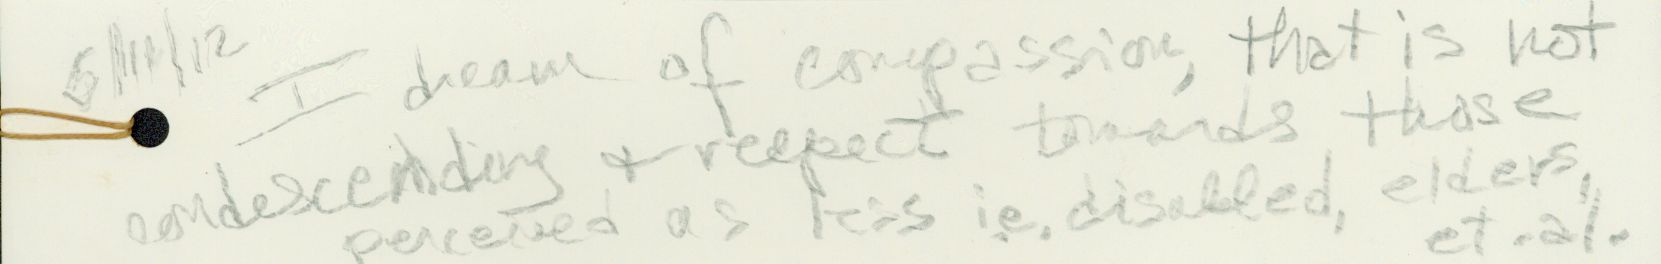 5/11/12
I dream of compassion, that is not
condescending & respect towards those
perceived as less i.e. disabled, elders,
et. al.